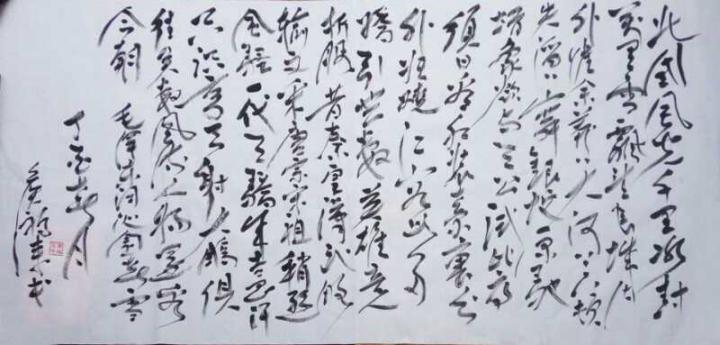 北国风光千里冰封
万里雪飘望长城内
外惟余莽莽大河上下顿
失滔滔山舞银蛇原驰
蜡象欲与天公试比高
须日看红装素裹分
外妖娆江山如此多
娇引无数英雄竞
折腰昔秦皇汉武略
输文采唐宗宋祖稍逊
风骚一代天骄成吉思汗
只识弯弓射大雕俱
往矣数风流人物还看
今朝 毛泽东词沁园春雪
丁酉月